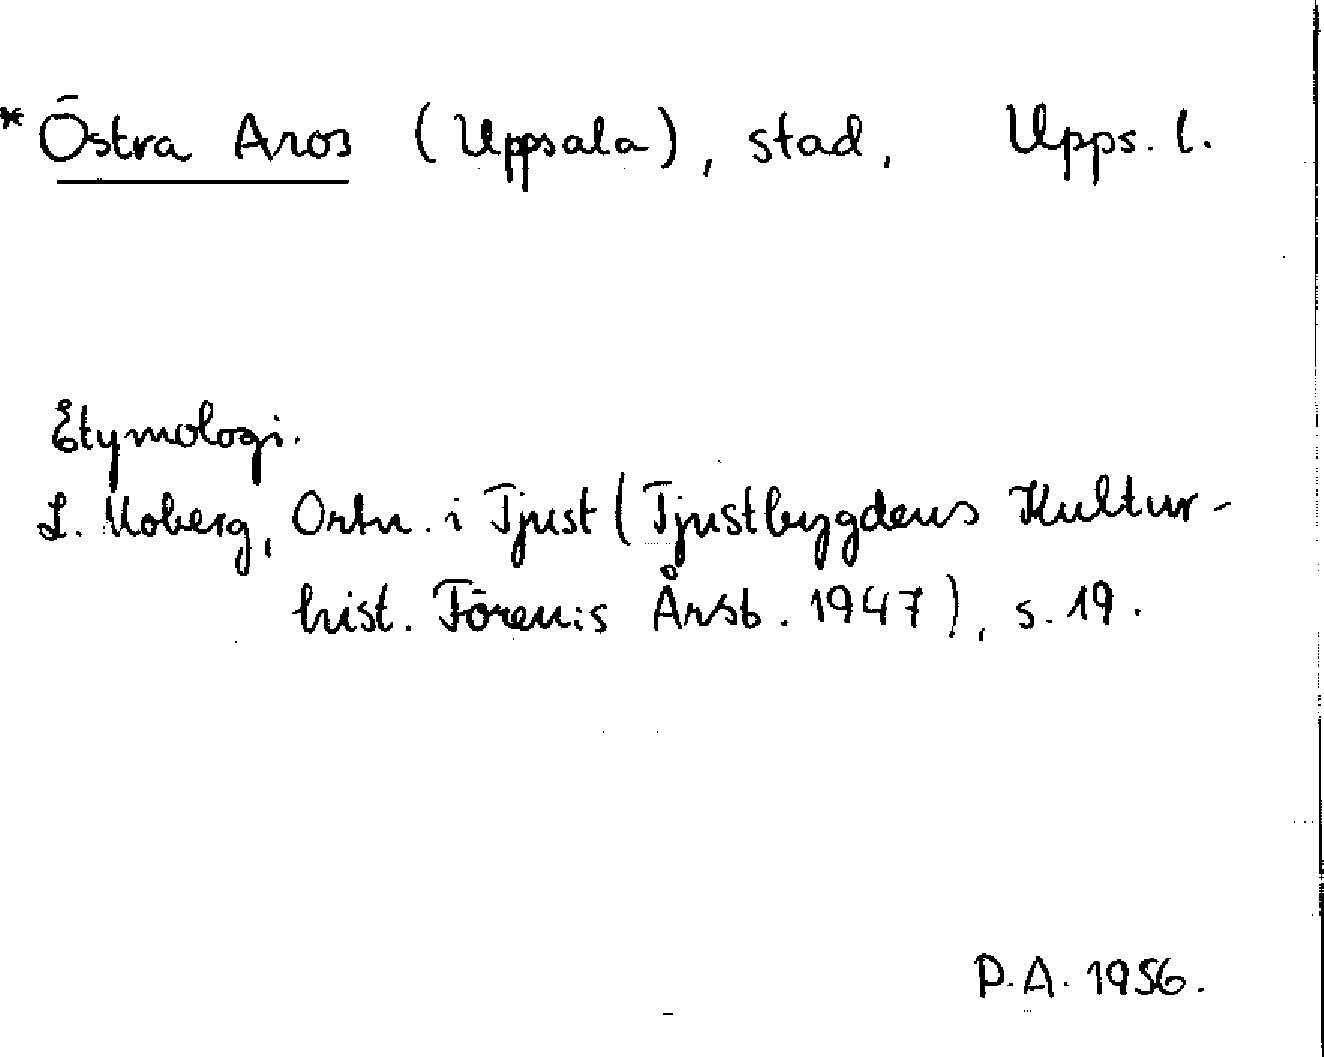 *Östra Aros (Uppsala), stad. Upps. l.
Etymologi.
L. Moberg, Ortn. i Tjust (Tjustbygdens Kultur-
hist. Fören:s Årsb. 1947), s. 19.
P.A. 1956.